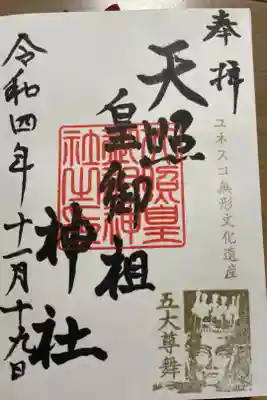 奉拝
ユネスコ無形文化遺産
五大尊舞
天照
皇御祖
神社
令和四年十一月十九日